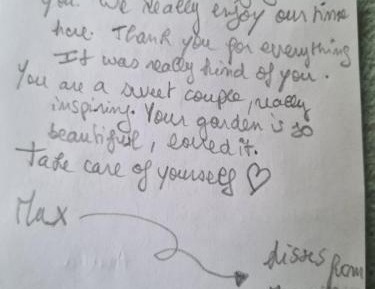 you. We really enjoy our time
here. Thank you for everything
It was really kind of you.
You are a sweet couple, really
inspiring. Your garden is so
beautiful, loved it.
Take care of yourself ♡
Max
kisses from